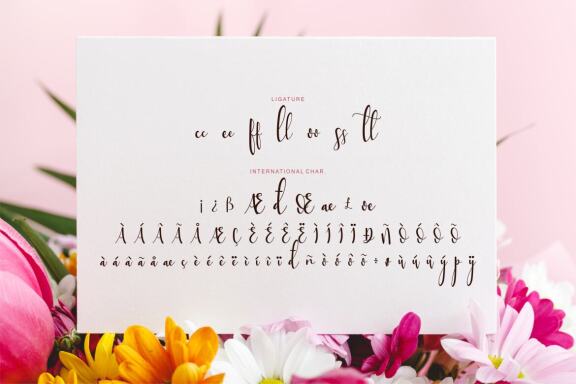 LIGATURE
cc ee ff ll oo ss tt
INTERNATIONAL CHAR.
¡ ¿ ß Æ đ Œ æ £ œ
À Á Â Ã Ä Å Æ Ç È É Ê Ë Ì Í Î Ï Ð Ñ Ò Ó Ô Õ
à á â ã ä å æ ç è é ê ë ì í î ï đ ñ ò ó ô õ ÷ ø ù ú û ý þ ÿ